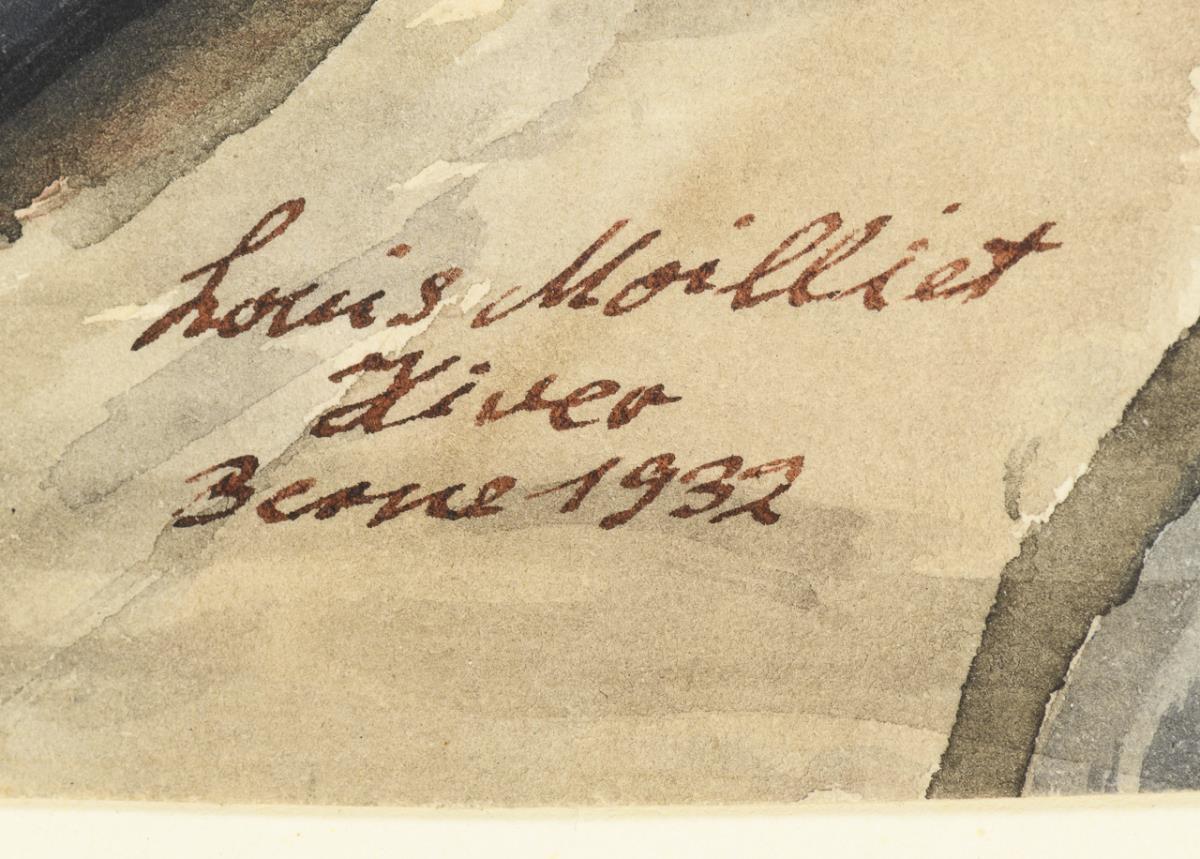 Louis Moilliet
Hiver
Berne 1932